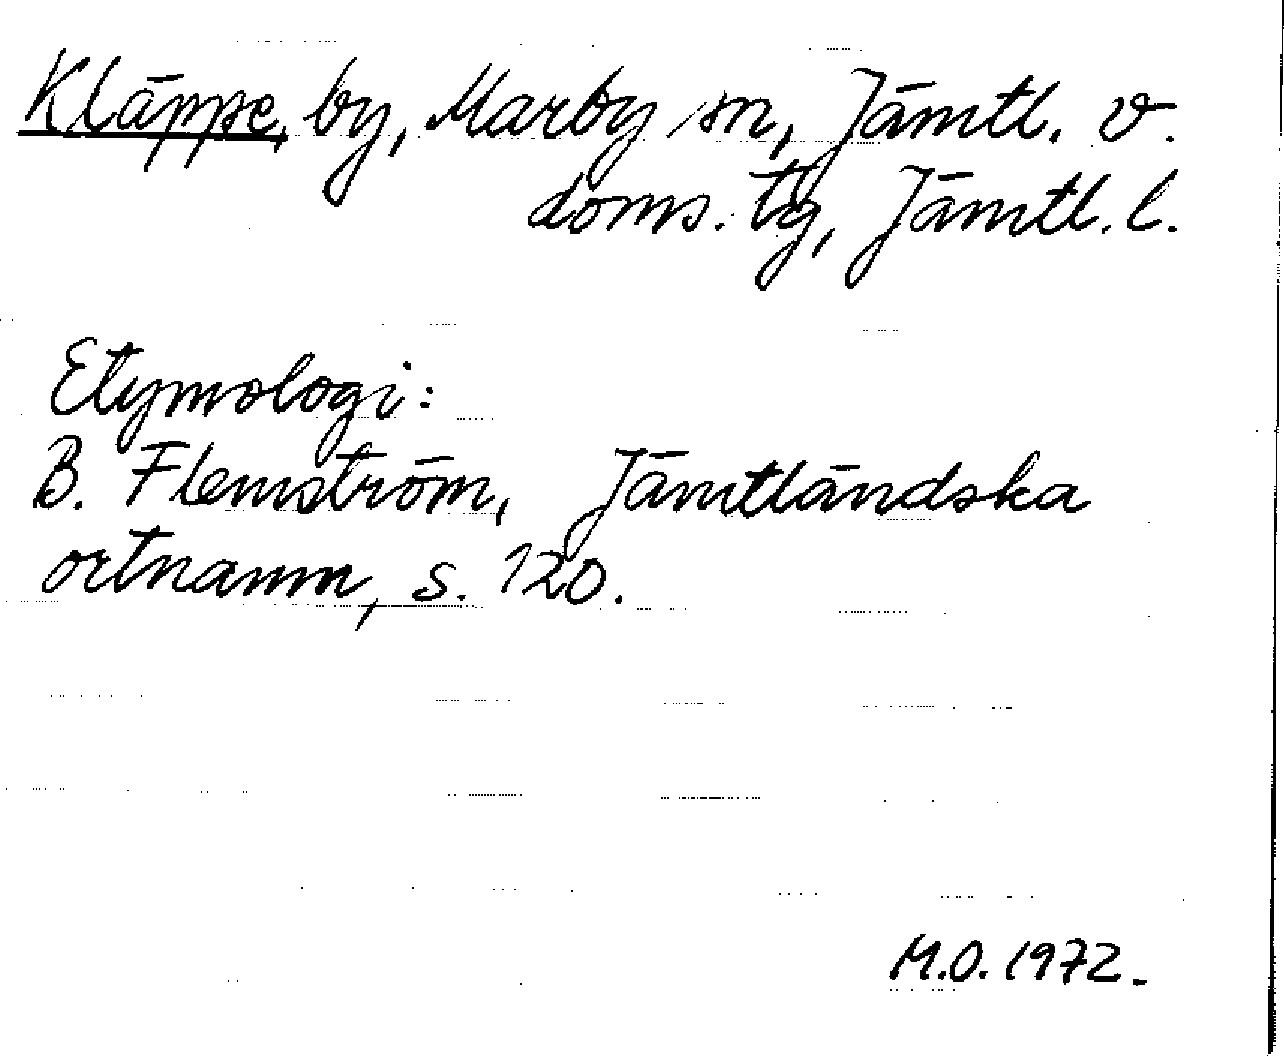 Kläppe, by, Marby sn, Jämtl. v.
doms. tg, Jämtl. l.
Etymologi:
B. Flemström, Jämtländska
ortnamn, s. 120.
M.O. 1972.